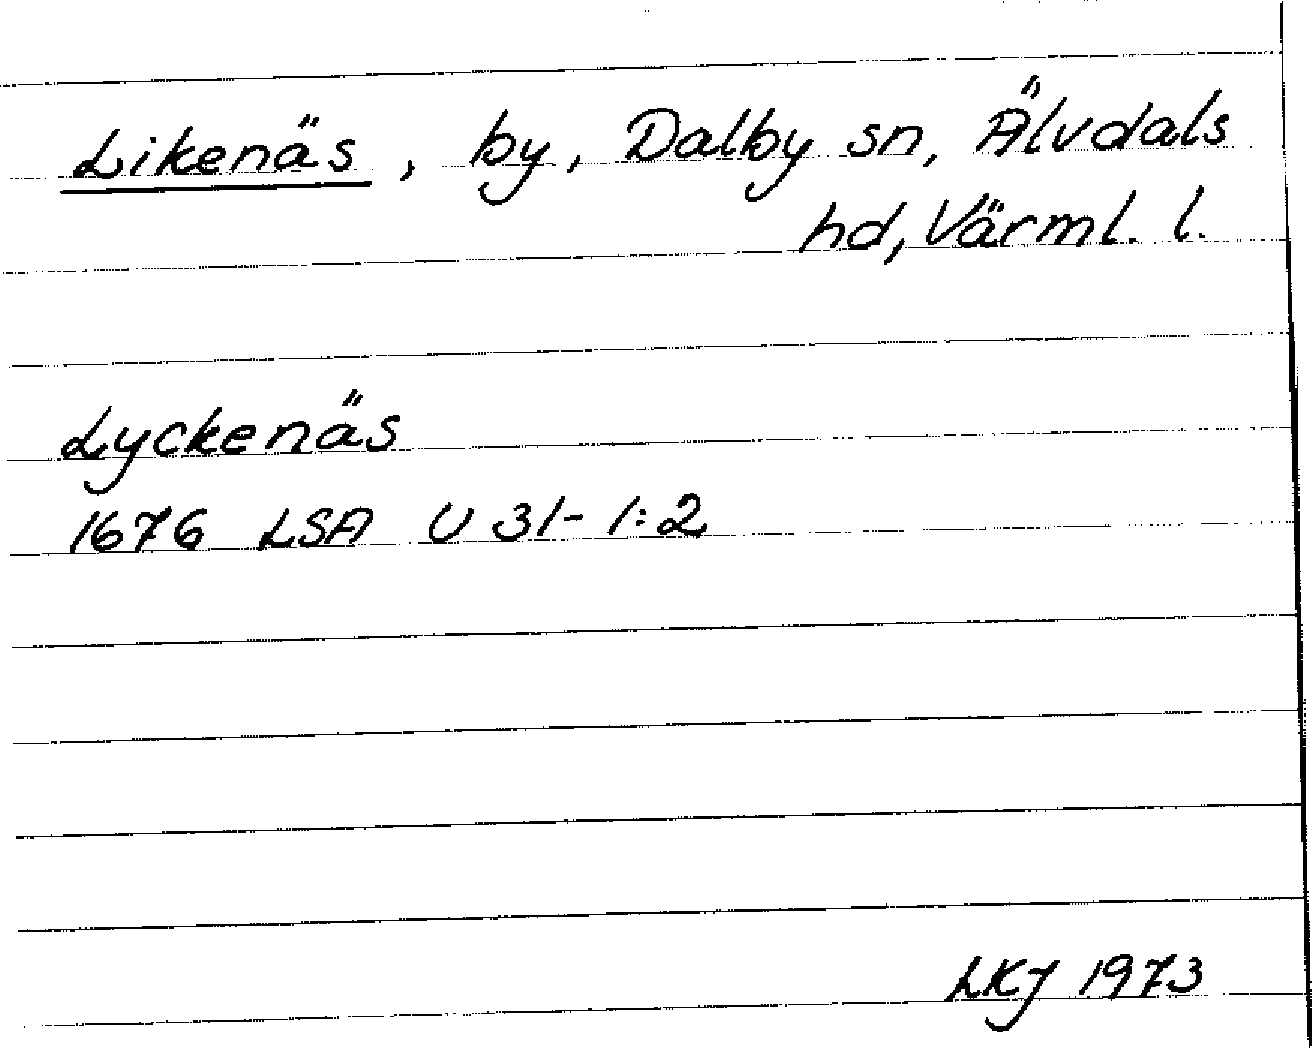 Likenäs, by, Dalby sn, Älvdals
hd, Värml. l.
Lyckenäs
1676 LSA U 31-1:2
LKJ 1973